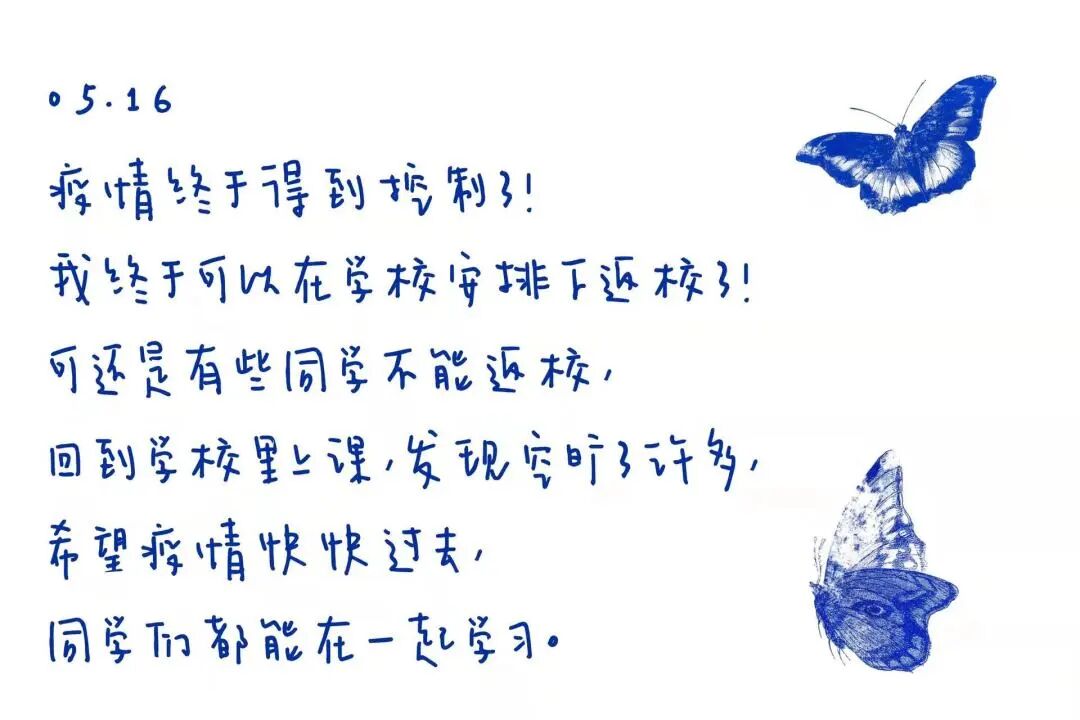 05.16
疫情终于得到控制了!
我终于可以在学校安排下返校了!
可还是有些同学不能返校,
回到学校里上课,发现空旷了许多,
希望疫情快快过去,
同学们都能在一起学习。